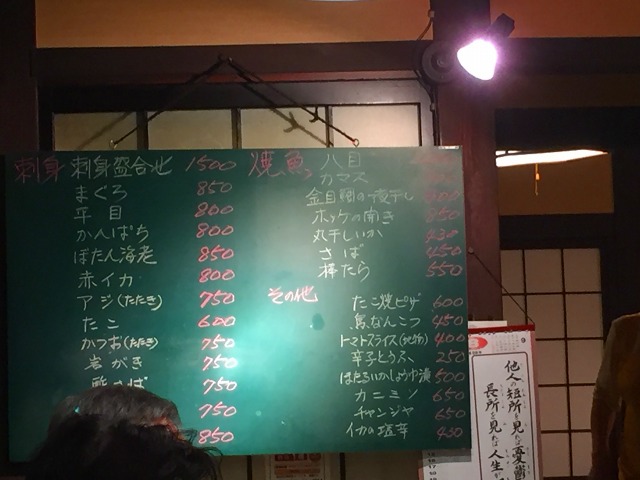 刺身 刺身盛合せ 1500
まぐろ 850
平目 800
かんぱち 800
ぼたん海老 850
赤イカ 800
アジ(たたき) 750
たこ 600
かつお(たたき) 750
岩がき 750
750
750
850
焼魚 八目
カマス
金目鯛の一夜干し
ホッケの開き 850
丸干しいか 430
さば 450
棒たら 550
その他
たこ焼ピザ 600
鳥なんこつ 450
トマトスライス 400
辛子とうふ 250
ほたるいかしょうゆ漬 500
カニミソ 650
チャンジャ 650
イカの塩辛 430
他人の短所を見れば憂鬱
長所を見れば人生が